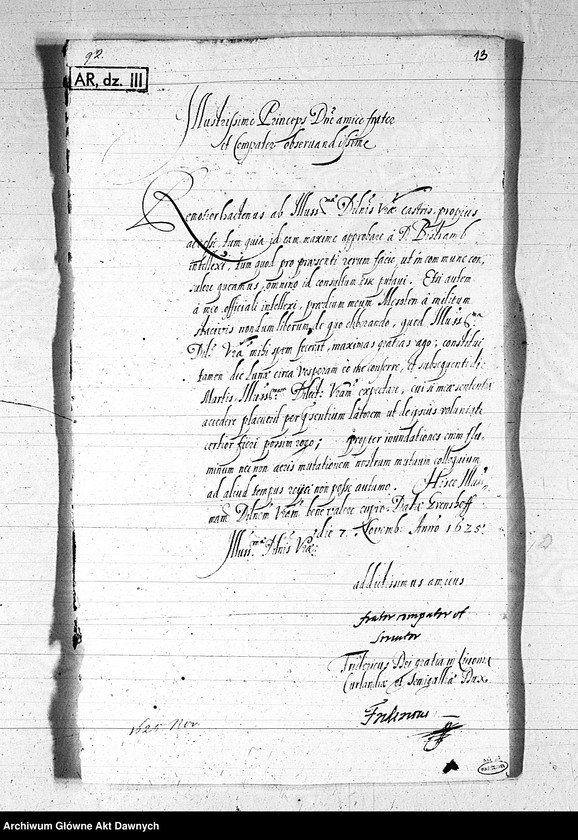 92.
13
AR, dz. III
Illustrissime Princeps Dne amice frater
et Compater observandissime
Remotior hactenus ab Illuss.ma Dilnis Vrae castris, propius
accessi, tum quia id eam maxime approbare à D. Bistramb
intellexi, tum quod pro praesenti rerum facie, ut in commune con,
sulere queamus, omnino id consultum esse putavi. Etsi autem
à meo officiali intellexi, praedium meum Mesoten à militum
stativis nondum liberum, de quo liberando, quod Illuss.ma
Dil.o Vra mihi spem fecerat, maximas gratias ago; constitui
tamen die Lunae circa vesperam eò me conferre, et subsequenti die
Martis, Illuss.mam Dilect. Vram expectare, cui si mea sententia
accedere placuerit per praesentium latorem ut de ipsius voluntate
certior fieri possim rogo; propter inundationes enim flu,
minum nec non aeris mutationem nostrum mutuum colloquium
ad aliud tempus rejici non posse autumo. Hisce Illuss.
mam Dilnem Vram bene valere cupio. Datae
die 7. Novemb. Anno 1625.
Illuss.mae Dilnis Vrae
addictissimus amicus
frater compater et
servitor
Fridericus Dei gratia in Livonia
Curlandiae et Semigalliae Dux
Fridericus
1625 Nov.
Archiwum Główne Akt Dawnych